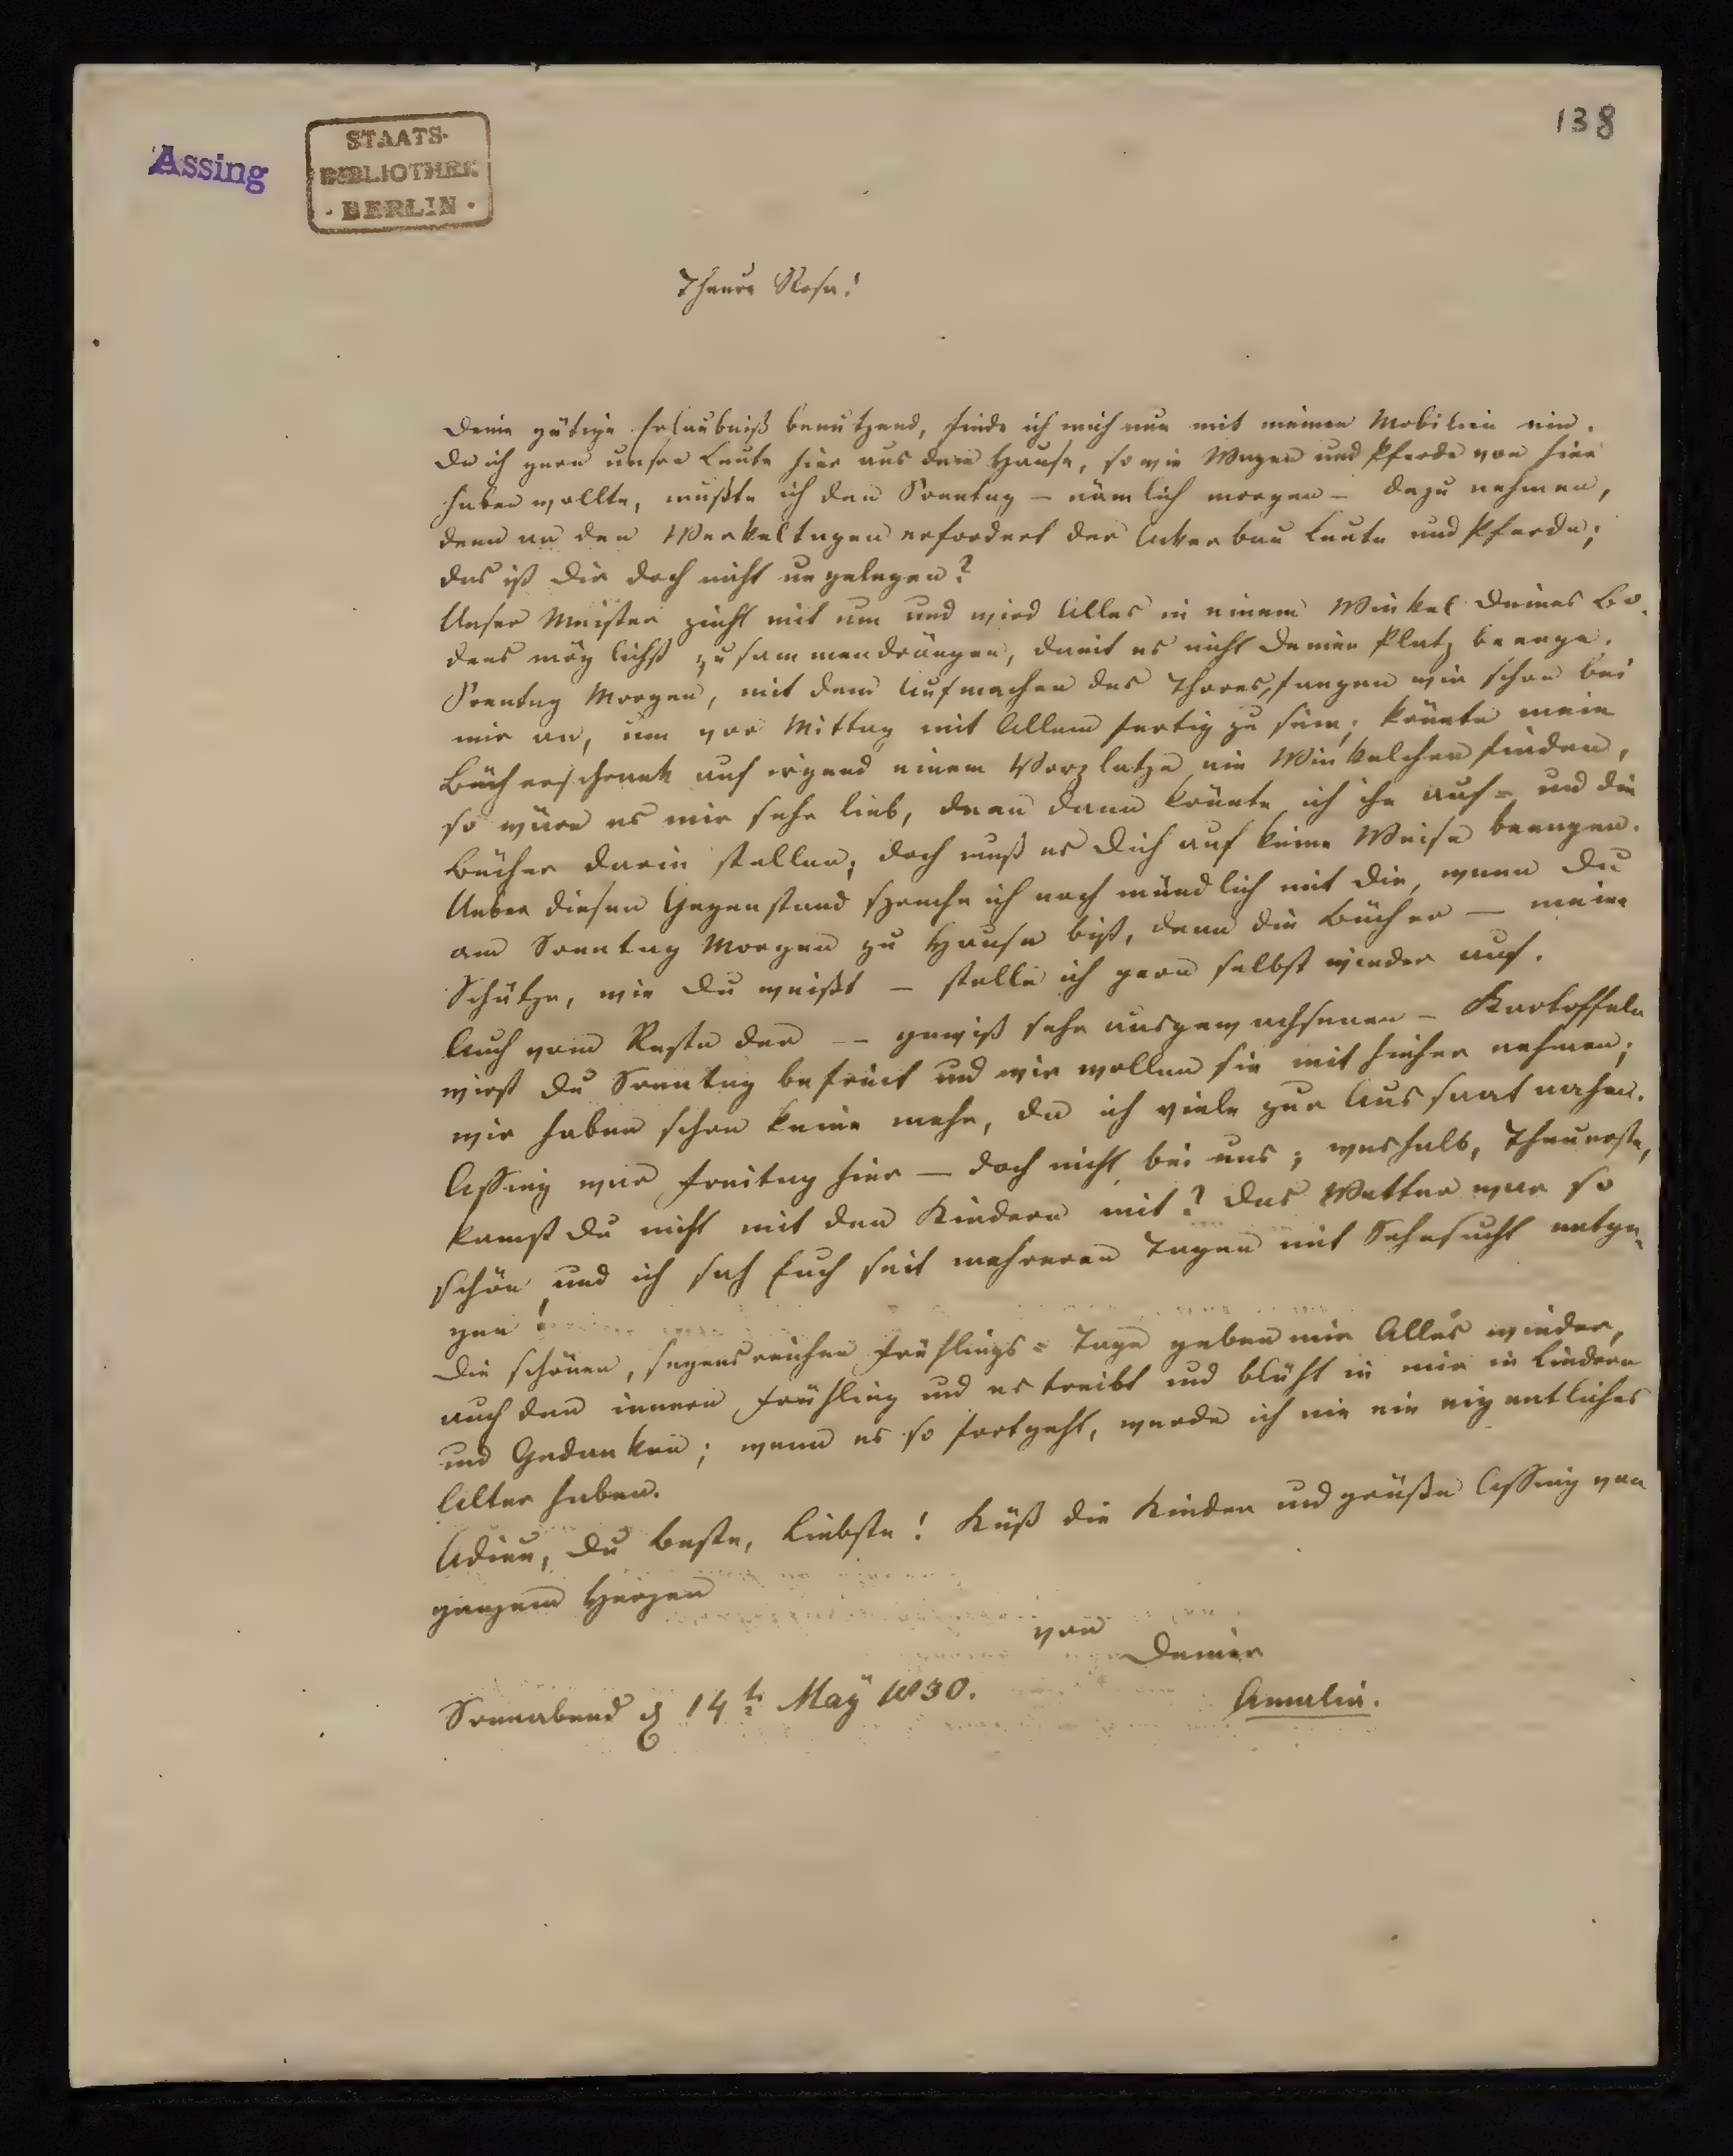 138
Assing
STAATS-
BIBLIOTHEK
· BERLIN ·
Theure Rosa!
Deine gütige Erlaubniß benutzend, finde ich mich nun mit meinen Mobilien ein.
Da ich gern unsre Leute hier aus dem Hause, so wie Wagen und Pferde von hier
haben wollte, mußte ich den Sonntag – nämlich morgen – dazu nehmen,
denn an den Werkeltagen erfordert der Ackerbau Leute und Pferde;
das ist Dir doch nicht ungelegen?
Unser Meister zieht mit um und wird Alles in einem Winkel Deines Bo-
dens möglichst zusammendrängen, damit es nicht Deinen Platz beenge.
Sonntag Morgen, mit dem Aufmachen des Thores, fangen wir schon bei
mir an, um vor Mittag mit Allem fertig zu sein; könnte mein
Bücherschrank auf irgend einem Vorplatze ein Winkelchen finden,
so wäre es mir sehr lieb, denn dann könnte ich ihn auf= und die
Bücher darin stellen; doch muß es Dich auf keine Weise beengen.
Ueber diesen Gegenstand spreche ich noch mündlich mit Dir, wenn Du
am Sonntag Morgen zu Hause bist, denn die Bücher — meine
Schätze, wie Du weißt – stelle ich gern selbst wieder auf.
Auch vom Reste der –– gewiß sehr ausgewachsenen – Kartoffeln
wirst Du Sonntag befreit und wir wollen sie mit hieher nehmen;
wir haben schon keine mehr, da ich viele zur Aussaat nahm.
Assing war Freitag hier — doch nicht bei uns; weshalb, Theuerste,
kamst Du nicht mit den Kindern mit? Das Wetter war so
schön und ich sah Euch seit mehreren Tagen mit Sehnsucht entge-
gen!
Die schönen, segensreichen Frühlings=Tage geben mir Alles wieder,
auch den innern Frühling und es treibt und blüht in mir in Liedern
und Gedanken; wenn es so fortgeht, werde ich nie ein eigentliches
Alter haben.
Adieu, Du Beste, Liebste! Küß die Kinder und grüße Assing von
ganzem Herzen
von
Deiner
Sonnabend d 14t May 1830.
Amalia.